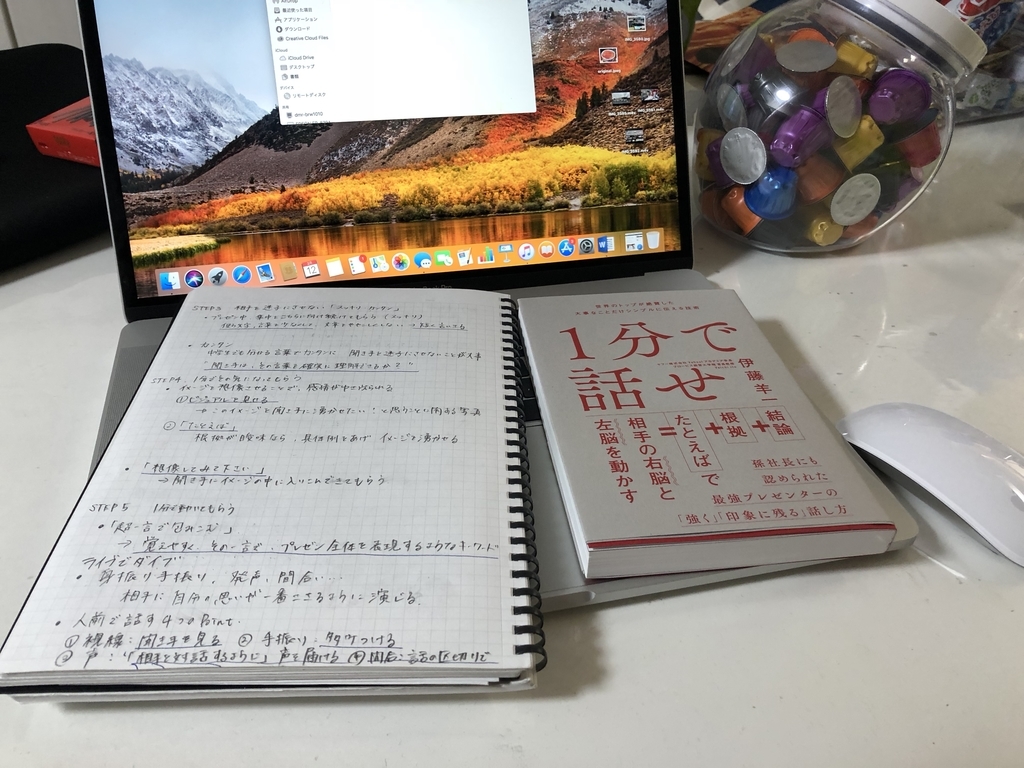 最近使った項目
アプリケーション
ダウンロード
Creative Cloud Files
iCloud
iCloud Drive
デスクトップ
書類
デバイス
リモートディスク
original.jpeg
12
STEP3 相手を迷子にさせない「スッキリ カンタン」
・カンタン
中学生でも分かる言葉でカンタンに 聞き手を迷子にさせないことが大事
STEP4 1分でその気になってもらう
・イメージを想像させることで、感情がゆさぶられる
①ビジュアルを見せる
→このイメージを聞き手に湧かせたい!と思うことに関する写真
②「たとえば」
根拠が曖昧なら、具体例をあげ イメージを湧かせる
・「想像してみて下さい」
→聞き手にイメージの中に入りこんできてもらう
STEP5 1分で動いてもらう
・「超一言で包みこむ」
→覚えやすく、その一言で、プレゼン全体を表現するようなキーワード
ライブでダイブ
・身振り手振り、発声、間合い…
相手に自分の思いが一番ささるように演じる。
・人前で話す4つのPoint.
①視線:聞き手を見る ②手振り:多少つける
③声:「相手と対話するように」声を届ける ④間合:話の区切りで
世界のトップが絶賛した
大事なことだけシンプルに伝える技術
1分で
話せ
伊藤羊一
結論
+
根拠
+
たとえばで
=
相手の右脳と
左脳を動かす
孫社長にも
認められた
最強プレゼンターの
「強く」「印象に残る」話し方